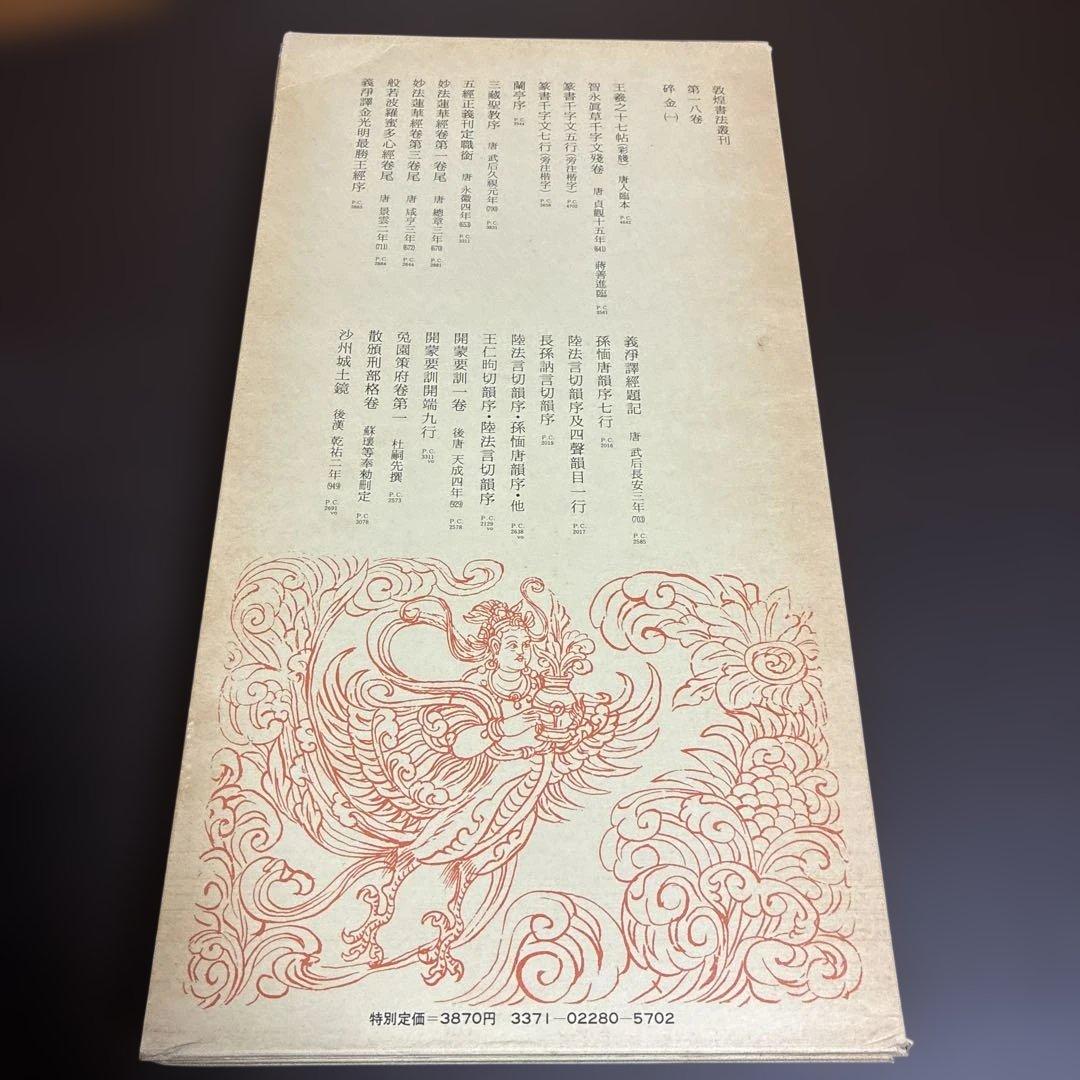 敦煌書法叢刊
第一八卷
碎金㈠
王羲之十七帖(彩牋) 唐人臨本 P.C. 4642
智永眞草千字文殘卷 唐 貞觀十五年(641) 蔣善進臨 P.C. 3561
篆書千字文五行(旁注楷字) P.C. 4702
篆書千字文七行(旁注楷字) P.C. 3658
蘭亭序 P.C. 2544
三藏聖教序 唐 武后久視元年(700) P.C. 3831
五經正義刊定職銜 唐 永徽四年(653) P.C. 3311
妙法蓮華經卷第一卷尾 唐 總章三年(670) P.C. 2881
妙法蓮華經卷第三卷尾 唐 咸亨三年(672) P.C. 2644
般若波羅蜜多心經卷尾 唐 景雲二年(711) P.C. 2884
義淨譯金光明最勝王經序 P.C.
義淨譯經題記 唐 武后長安三年(703) P.C. 2585
孫愐唐韻序七行 P.C. 2016
陸法言切韻序及四聲韻目一行 P.C. 2017
長孫訥言切韻序 P.C. 2019
陸法言切韻序・孫愐唐韻序・他 P.C. 2638 vo
王仁昫切韻序・陸法言切韻序 P.C. 2129 vo
開蒙要訓一卷 後唐 天成四年(929) P.C. 2578
開蒙要訓開端九行 P.C. 3311 vo
兔園策府卷第一 杜嗣先撰 P.C. 2573
散頒刑部格卷 蘇瓌等奉勅刪定 P.C. 3078
沙州城土鏡 後漢 乾祐二年(949) P.C. 2691 vo
特別定価=3870円 3371―02280―5702